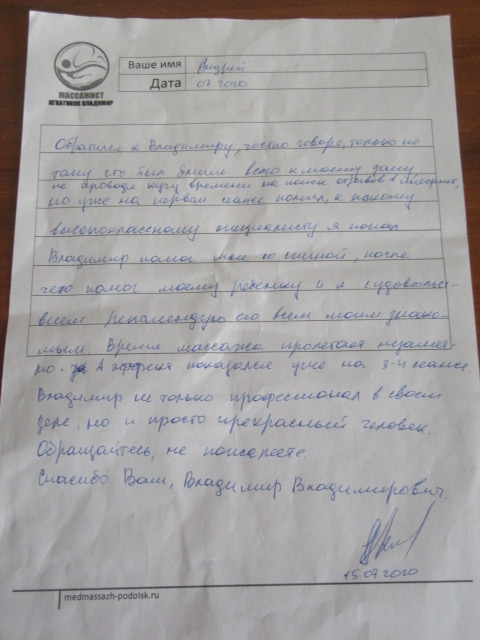 МАССАЖИСТ
ИГНАТИКОВ ВЛАДИМИР
Ваше имя Андрей
Дата 07.2020
Обратился к Владимиру, честно говоря, только по
тому что был ближе всего к моему дому
не проводя кучу времени на поиск отзывов в интернет,
но уже на первом сеансе понял, к какому
высококлассному специалисту я попал
Владимир помог мне со спиной, после
чего помог моему ребенку и я с удовольст-
вием рекомендую его всем моим знако-
мым. Время массажа пролетает незамет-
но. А эффект показался уже на 3-м сеансе.
Владимир не только профессионал в своем
деле, но и просто прекрасный человек.
Обращайтесь, не пожалеете.
Спасибо Вам, Владимир Владимирович.
15.07.2020
medmassazh-podolsk.ru